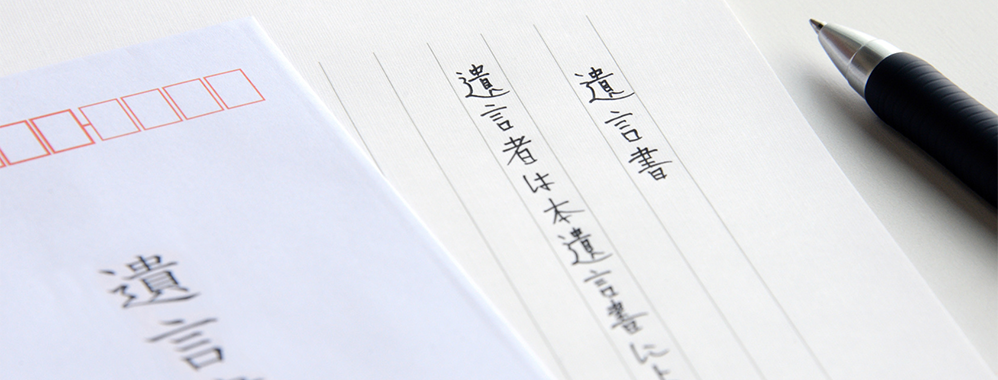 遺言書
遺言者は本遺言書に
遺言